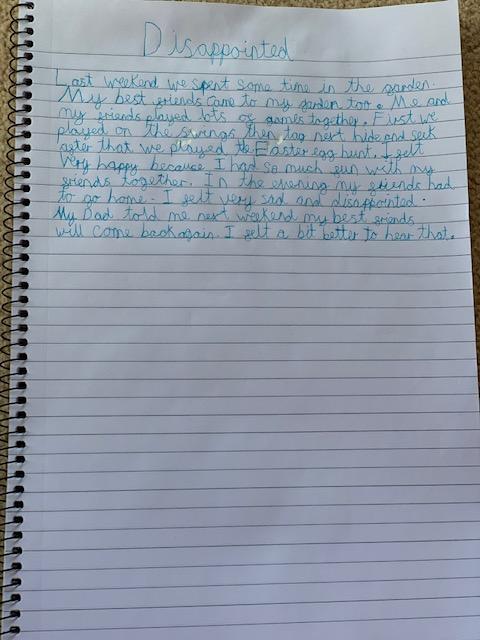 Disappointed
Last weekend we spent some time in the garden.
My best friends came to my garden too. Me and
my friends played lots of games together. First we
played on the swings then tag next hide and seek
after that we played the Easter egg hunt. I felt
very happy because I had so much fun with my
friends together. In the evening my friends had
to go home. I felt very sad and disappointed.
My Dad told me next weekend my best friends
will come back again I felt a bit better to hear that.